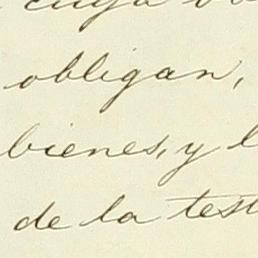 cuya
obligan,
bienes, y
de la